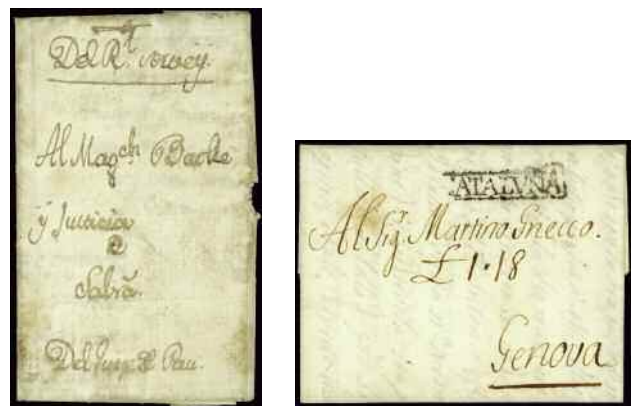 Del R.
Al Mag.ch Batlle
y Justicia
de
Cabra.
Del Juez de Pau.
CATALUÑA
Al Sig.r Martino Gnecco.
£1·18
Genova